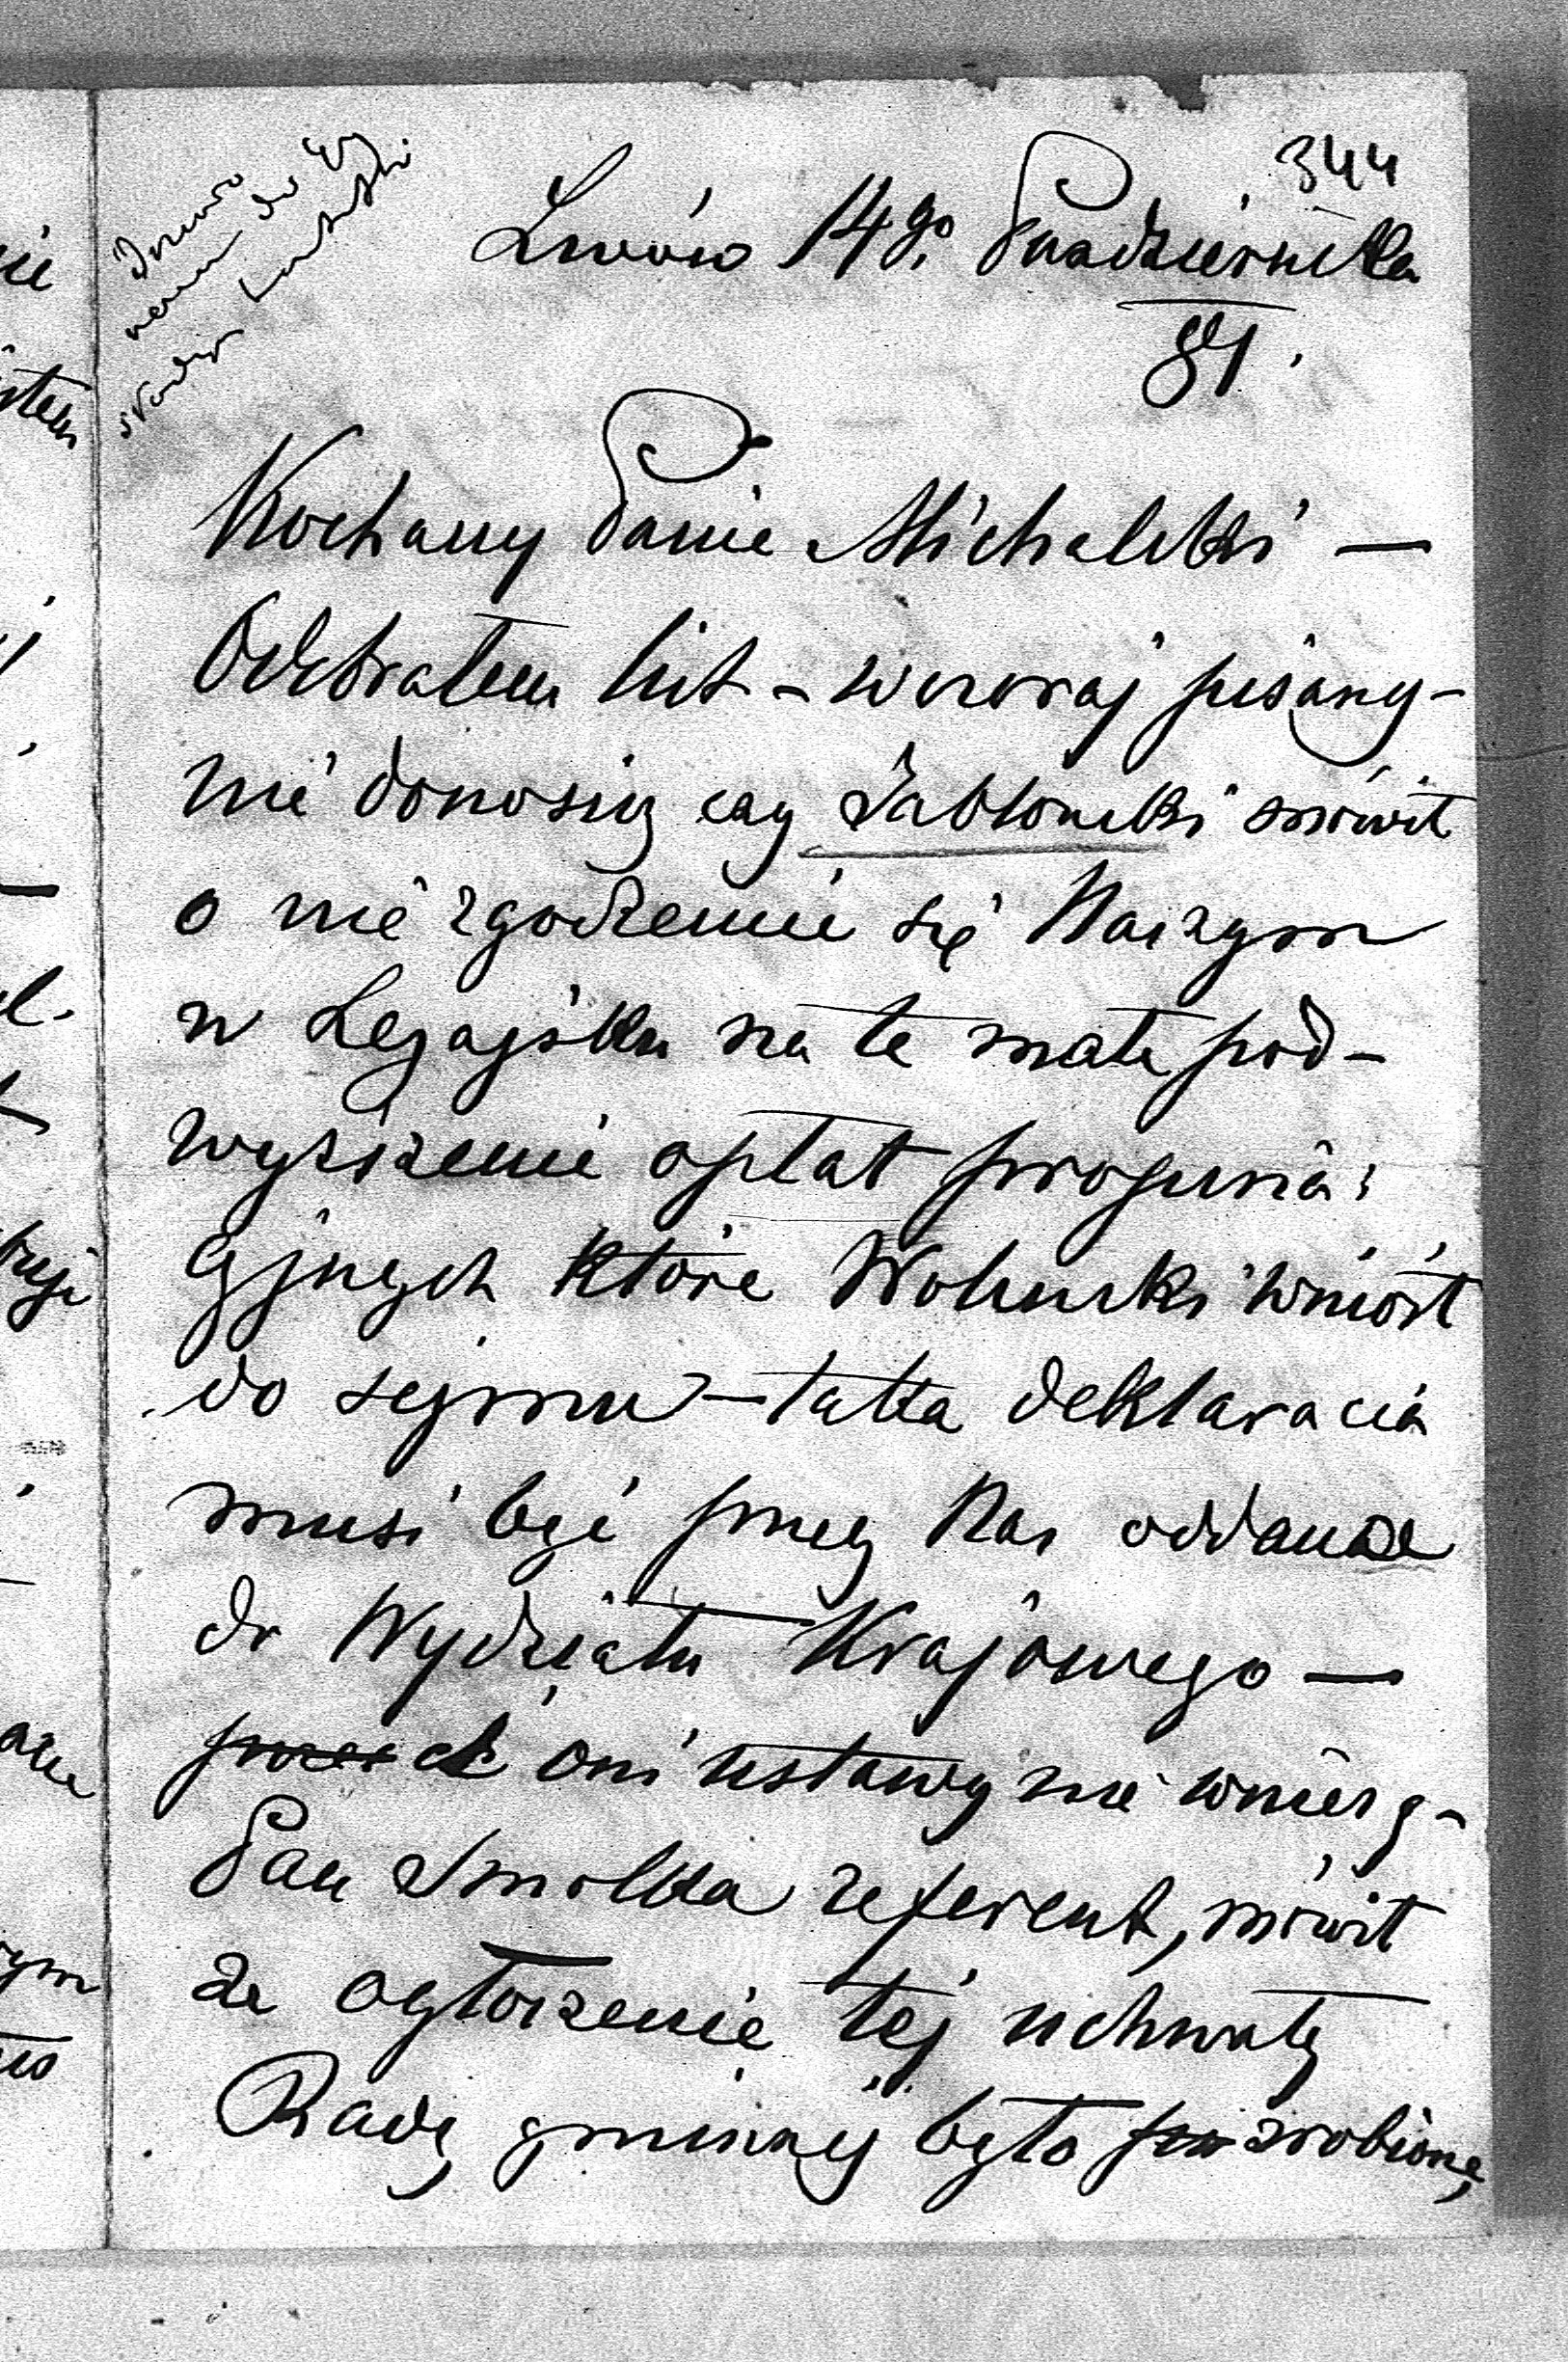 344
Lwów 14go Pazdziernika
81.
Kochany Panie Michalski —
Odebrałem list - wczoraj pisany -
nie donosisz czy Jabłonski mówił
o nie zgodzenie się Naszym
w Leżajsku na te małe pod-
wyższenie opłat propina-
cyjnych które Wolinski wniósł
do sejmu — taka deklaracia
musi być przez Nas oddana
do Wydziału Krajowego —
oni ustawy nie wniesą -
Pan Smolka referent, mówił
że ogłoszenie tej uchwały
Rady gminnej było zrobione,